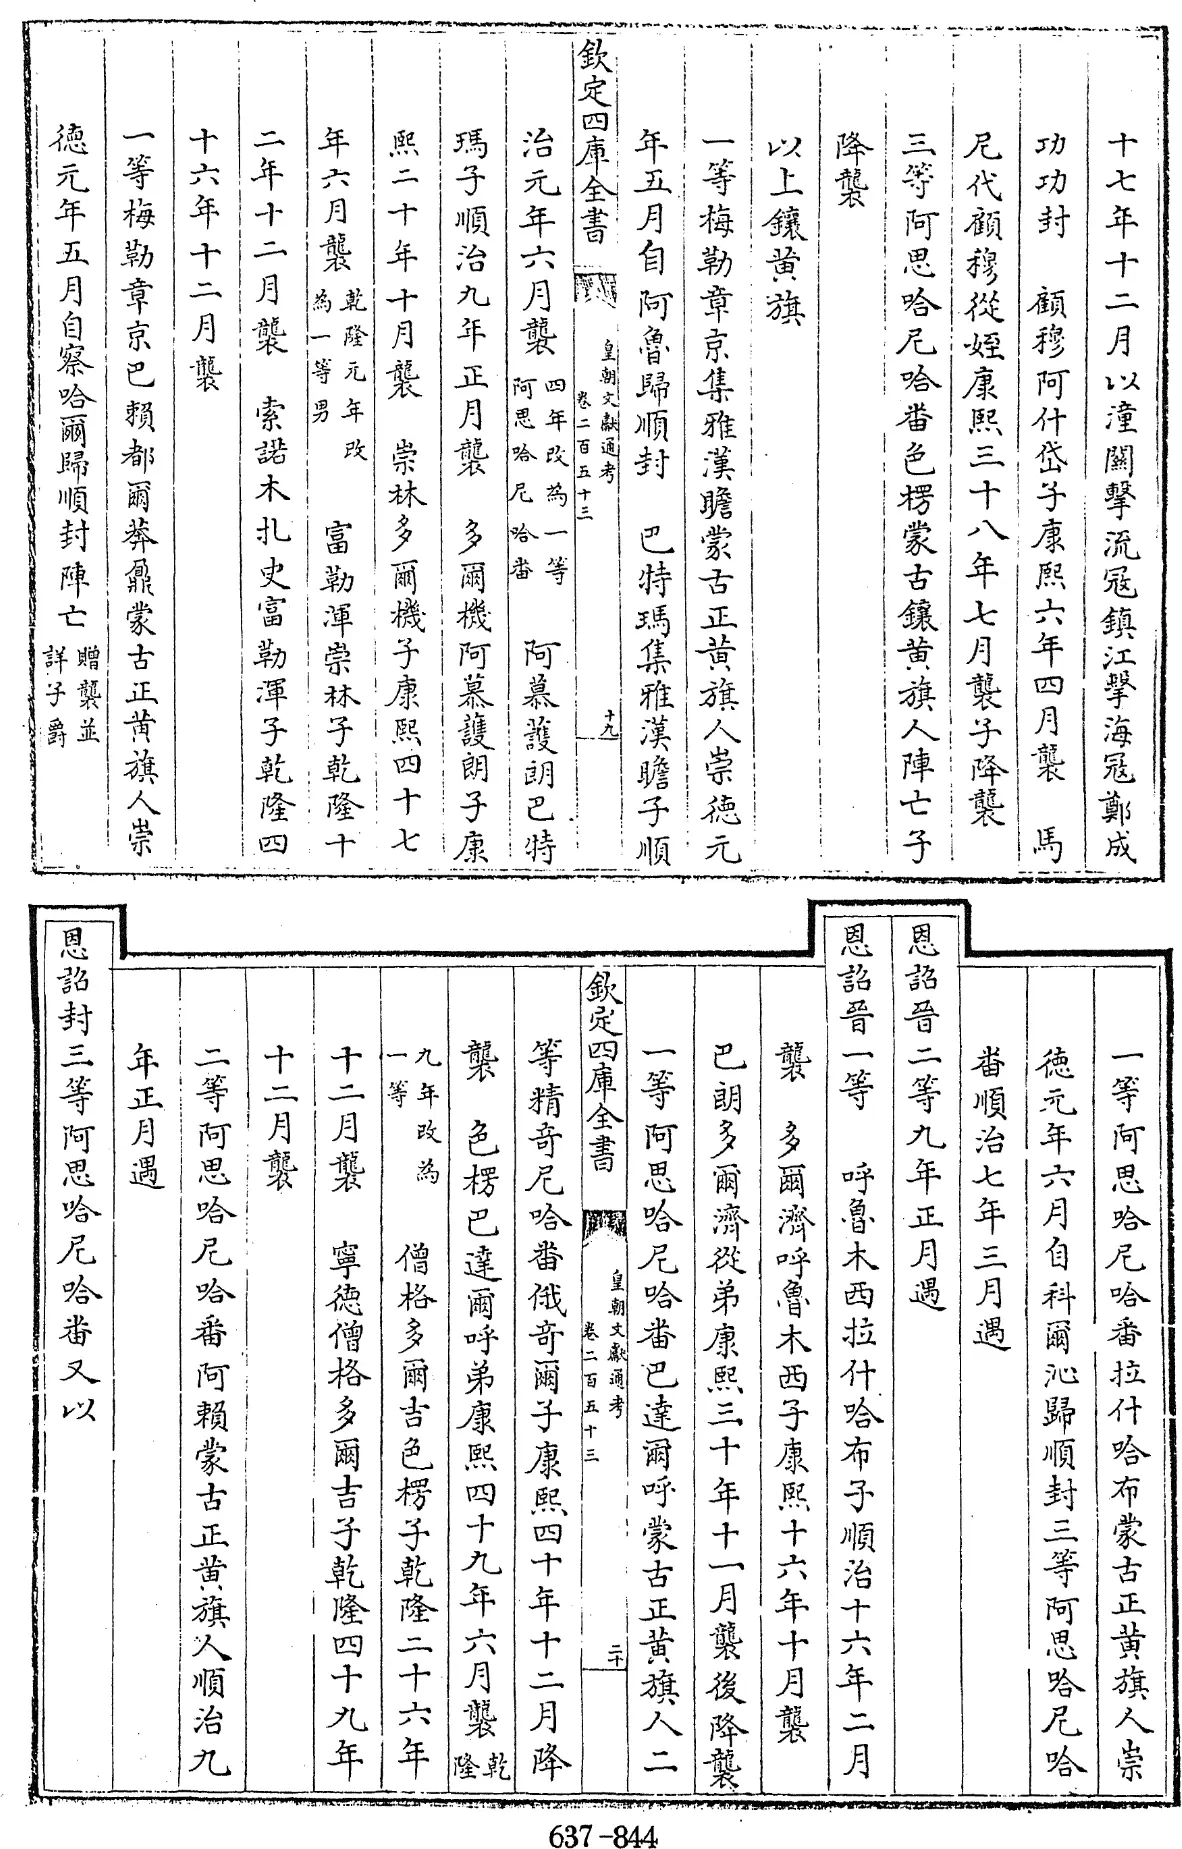 十七年十二月以潼關擊流冦鎮江擊海冦鄭成
功功封　顧穆阿什岱子康熙六年四月襲　馬
尼代顧穆從姪康熙三十八年七月襲子降襲
三等阿思哈尼哈番色楞蒙古鑲黄旗人陣亡子
降襲
以上鑲黄旗
一等梅勒章京集雅漢瞻蒙古正黄旗人崇徳元
年五月自阿魯歸順封　巴特瑪集雅漢瞻子順
欽定四庫全書
皇朝文獻通考
卷二百五十三
十九
治元年六月襲　四年改為一等阿思哈尼哈番　阿慕護朗巴特
瑪子順治九年正月襲　多爾機阿慕護朗子康
熙二十年十月襲　崇林多爾機子康熙四十七
年六月襲　乾隆元年改為一等男　富勒渾崇林子乾隆十
二年十二月襲　索諾木扎史富勒渾子乾隆四
十六年十二月襲
一等梅勒章京巴賴都爾莽鼐蒙古正黄旗人崇
徳元年五月自察哈爾歸順封陣亡　贈襲並詳子爵
一等阿思哈尼哈番拉什哈布蒙古正黄旗人崇
徳元年六月自科爾沁歸順封三等阿思哈尼哈
番順治七年三月遇
恩詔晉二等九年正月遇
恩詔晉一等　呼魯木西拉什哈布子順治十六年二月
襲　多爾濟呼魯木西子康熙十六年十月襲
巴朗多爾濟從弟康熙三十年十一月襲後降襲
一等阿思哈尼哈番巴達爾呼蒙古正黄旗人二
欽定四庫全書
皇朝文獻通考
卷二百五十三
二十
等精奇尼哈番俄奇爾子康熙四十年十二月降
襲　色楞巴達爾呼弟康熙四十九年六月襲　乾隆
九年改為一等　僧格多爾吉色楞子乾隆二十六年
十二月襲　寧德僧格多爾吉子乾隆四十九年
十二月襲
二等阿思哈尼哈番阿賴蒙古正黄旗人順治九
年正月遇
恩詔封三等阿思哈尼哈番又以
637-844